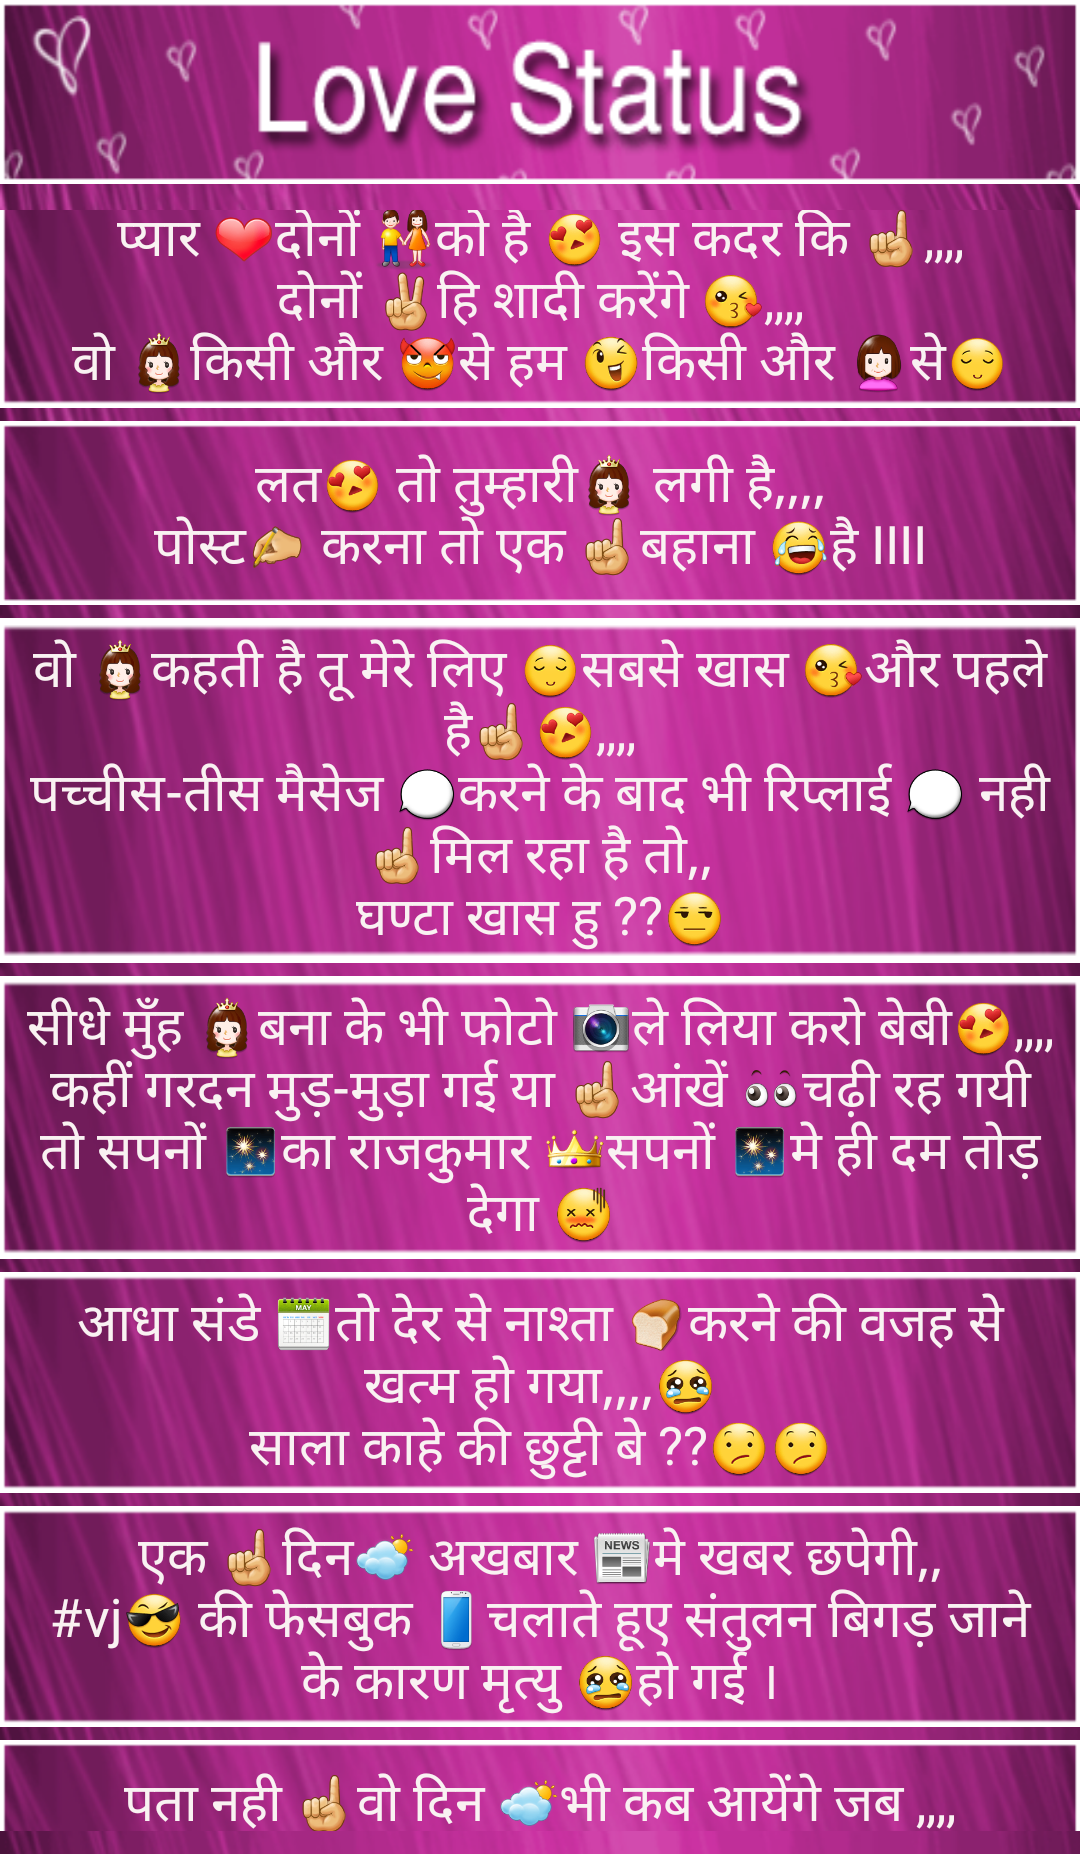 Love Status
प्यार ❤️दोनों 👫को है 😍 इस कदर कि ☝,,,,
दोनों ✌हि शादी करेंगे 😘,,,,
वो 👸किसी और 😈से हम 😉किसी और 👩से😌
लत😍 तो तुम्हारी👸 लगी है,,,,
पोस्ट✍ करना तो एक ☝बहाना 😂है llll
वो 👸कहती है तू मेरे लिए 😌सबसे खास 😘और पहले
है☝😍,,,,
पच्चीस-तीस मैसेज 💬करने के बाद भी रिप्लाई 💬 नही
☝मिल रहा है तो,,
घण्टा खास हु ??😒
सीधे मुँह 👸बना के भी फोटो 📷ले लिया करो बेबी😍,,,,
कहीं गरदन मुड़-मुड़ा गई या ☝आंखें 👀चढ़ी रह गयी
तो सपनों 🎇का राजकुमार 👑सपनों 🎇मे ही दम तोड़
देगा 😖
आधा संडे 📅तो देर से नाश्ता 🍞करने की वजह से
खत्म हो गया,,,,😢
साला काहे की छुट्टी बे ??😕😕
एक ☝दिन🌥 अखबार 📰मे खबर छपेगी,,
#vj😎 की फेसबुक 📱चलाते हूए संतुलन बिगड़ जाने
के कारण मृत्यु 😢हो गई ।
पता नही ☝वो दिन 🌥भी कब आयेंगे जब ,,,,